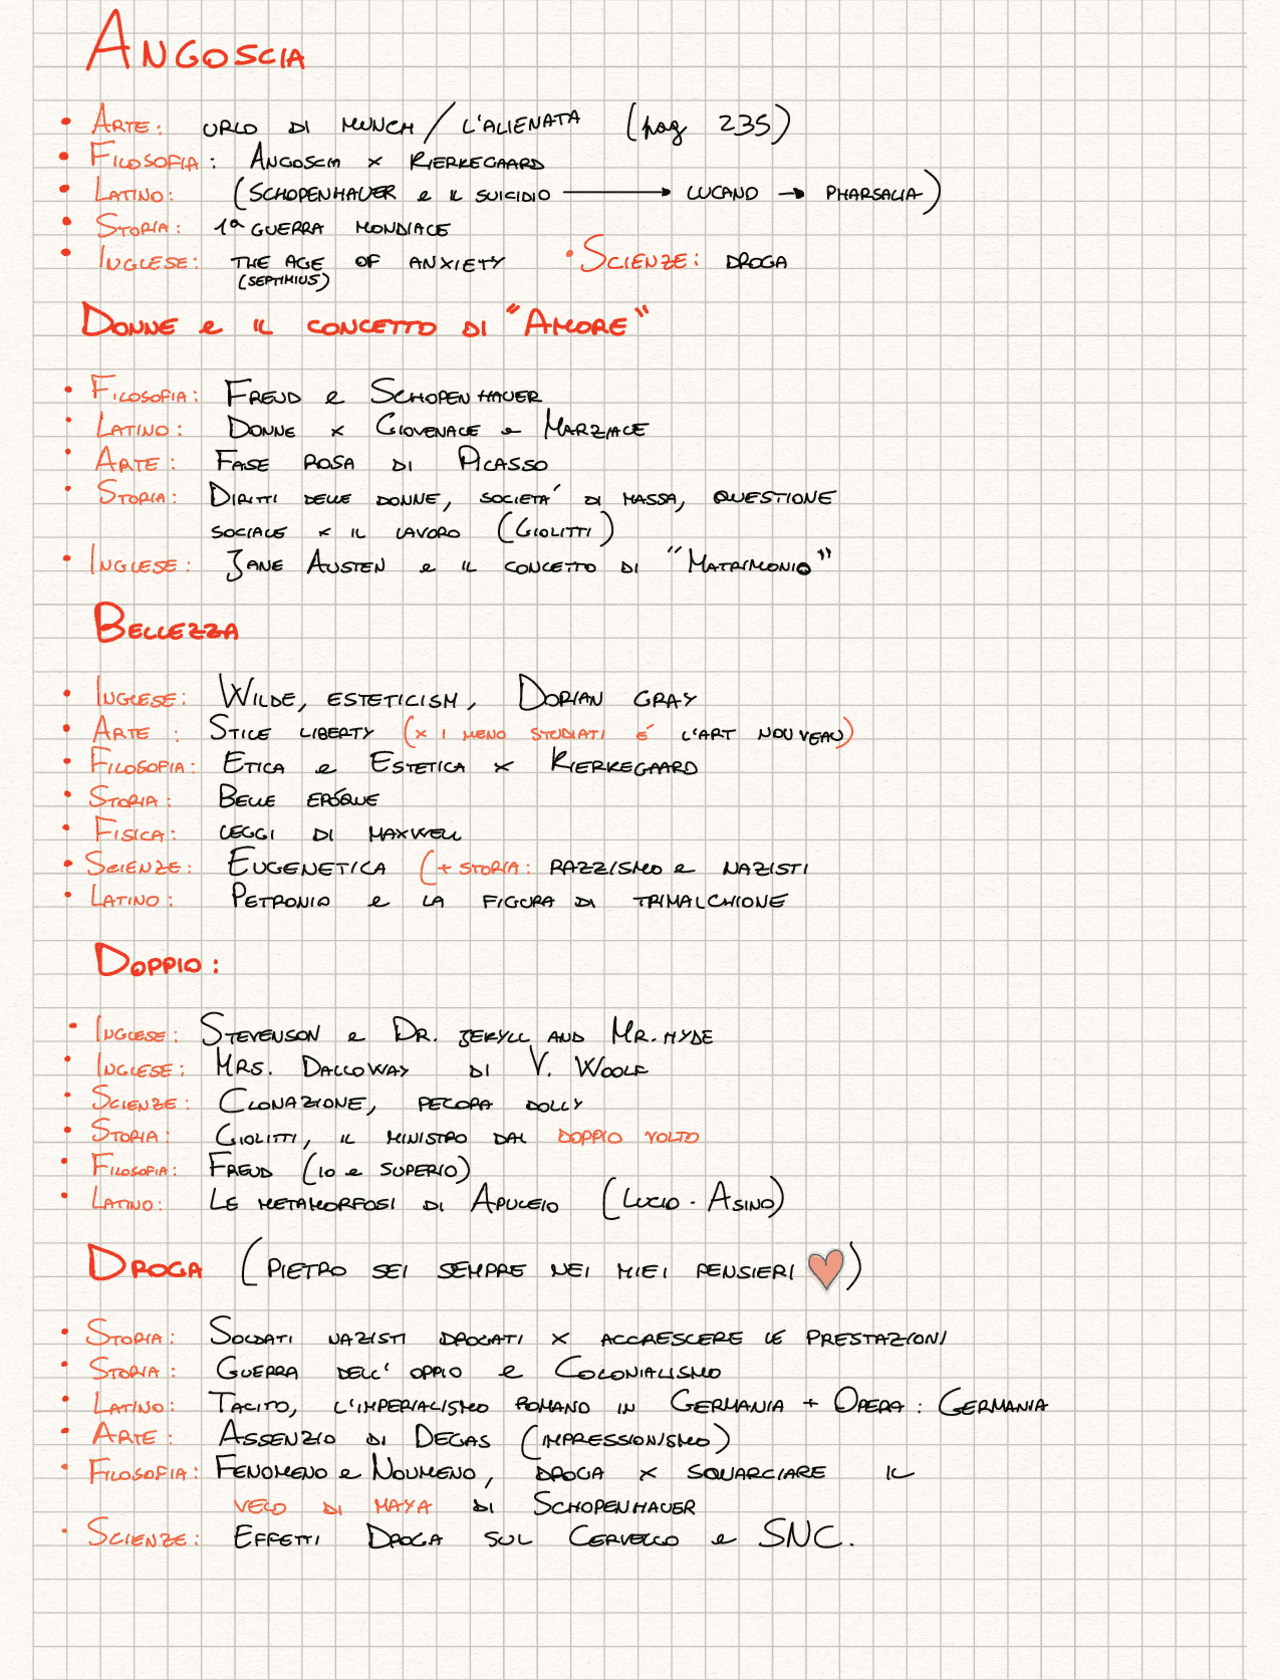 ANGOSCIA
• ARTE: URLO DI MUNCH / L'ALIENATA (pag 235)
• FILOSOFIA: ANGOSCIA x KIERKEGAARD
• LATINO: (SCHOPENHAUER e IL SUICIDIO → LUCANO → PHARSALIA)
• STORIA: 1ª GUERRA MONDIALE
• INGLESE: THE AGE OF ANXIETY • SCIENZE: DROGA
(SEPTIMIUS)
DONNE e IL CONCETTO DI "AMORE"
• FILOSOFIA: FREUD e SCHOPENHAUER
• LATINO: DONNE x GIOVENALE e MARZIALE
• ARTE: FASE ROSA DI PICASSO
• STORIA: DIRITTI DELLE DONNE, SOCIETA' DI MASSA, QUESTIONE
SOCIALE x IL LAVORO (GIOLITTI)
• INGLESE: JANE AUSTEN e IL CONCETTO DI "MATRIMONIO"
BELLEZZA
• INGLESE: WILDE, ESTETICISM, DORIAN GRAY
• ARTE: STILE LIBERTY (x I MENO STUDIATI É L'ART NOUVEAU)
• FILOSOFIA: ETICA e ESTETICA x KIERKEGAARD
• STORIA: BELLE EPÓQUE
• FISICA: LEGGI DI MAXWELL
• SCIENZE: EUGENETICA (+ STORIA: RAZZISMO e NAZISTI
• LATINO: PETRONIO e LA FIGURA DI TRIMALCHIONE
DOPPIO:
• INGLESE: STEVENSON e DR. JEKYLL AND MR. HYDE
• INGLESE: MRS. DALLOWAY DI V. WOOLF
• SCIENZE: CLONAZIONE, PECORA DOLLY
• STORIA: GIOLITTI, IL MINISTRO DAL DOPPIO VOLTO
• FILOSOFIA: FREUD (IO e SUPERIO)
• LATINO: LE METAMORFOSI DI APULEIO (LUCIO - ASINO)
DROGA (PIETRO SEI SEMPRE NEI MIEI PENSIERI ♥)
• STORIA: SOLDATI NAZISTI DROGATI x ACCRESCERE LE PRESTAZIONI
• STORIA: GUERRA DELL'OPPIO e COLONIALISMO
• LATINO: TACITO, L'IMPERIALISMO ROMANO IN GERMANIA + OPERA: GERMANIA
• ARTE: ASSENZIO DI DEGAS (IMPRESSIONISMO)
• FILOSOFIA: FENOMENO e NOUMENO, DROGA x SQUARCIARE IL
VELO DI MAYA DI SCHOPENHAUER
• SCIENZE: EFFETTI DROGA SUL CERVELLO e SNC.